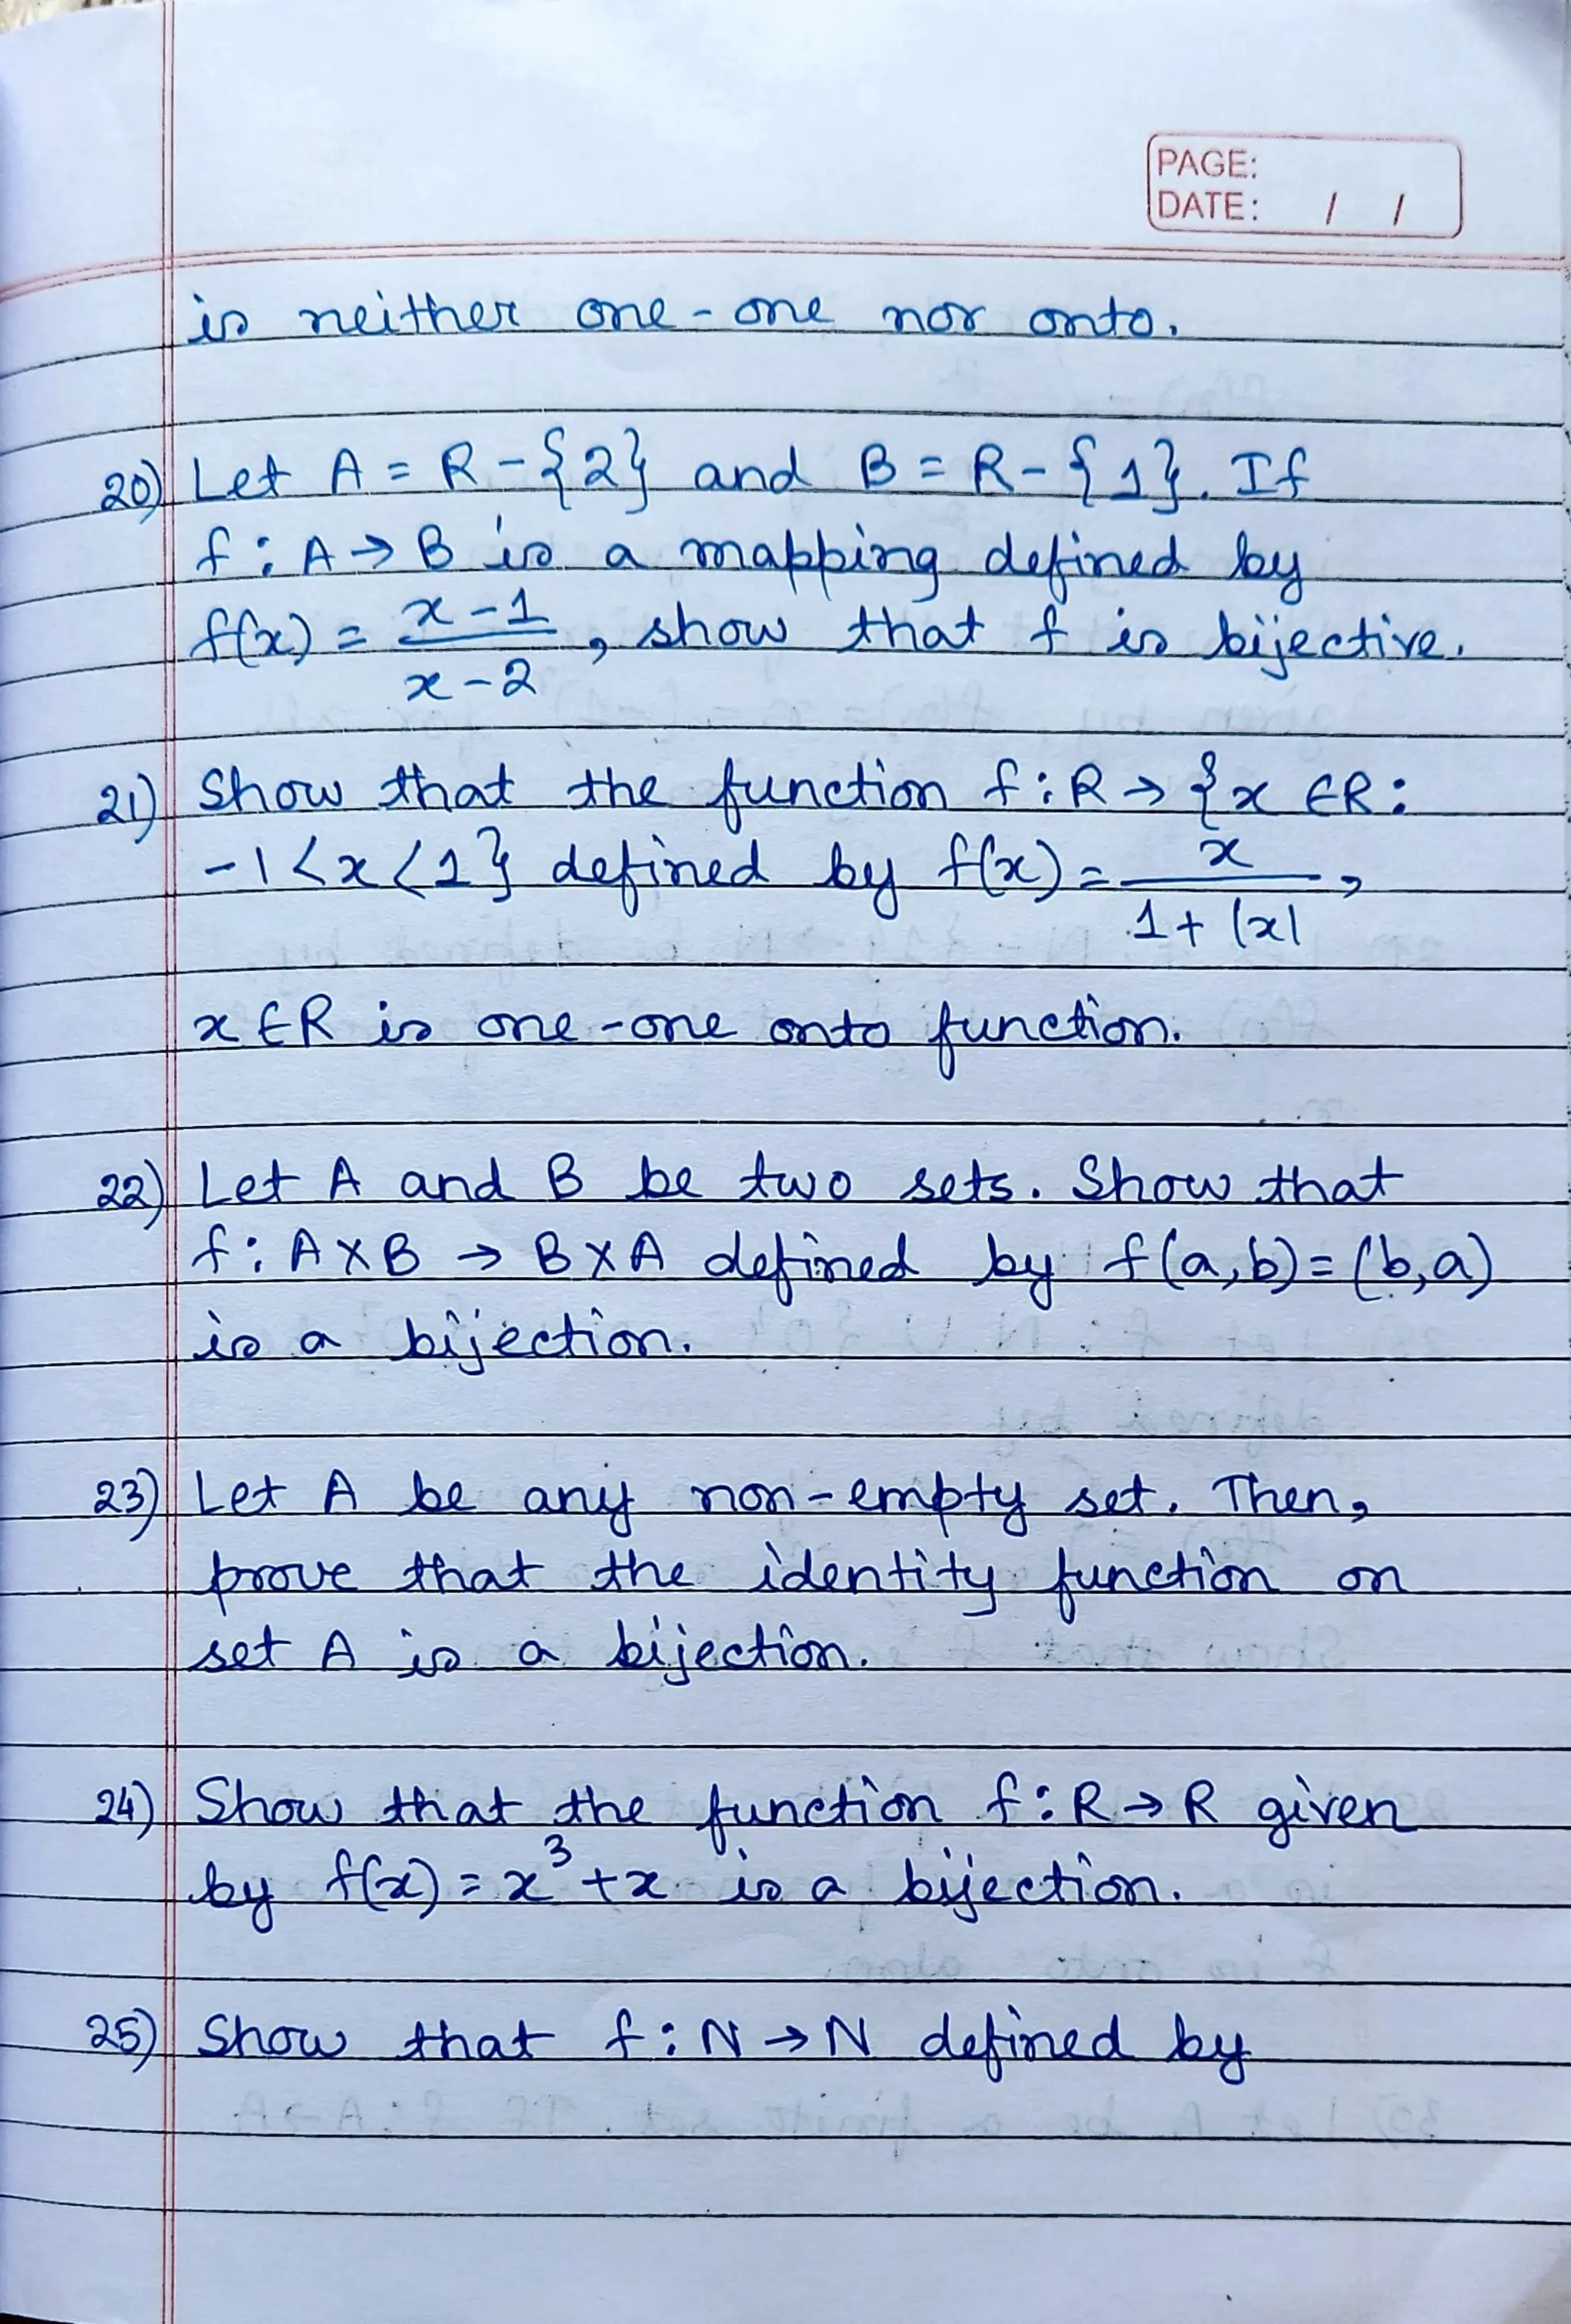 PAGE:
DATE: / /
is neither one-one nor onto.
20) Let A = R - {2} and B = R - {1}. If
f : A → B is a mapping defined by
f(x) = x - 1 / x - 2, show that f is bijective.
21) Show that the function f : R → {x ∈ R :
-1 < x < 1} defined by f(x) = x / 1 + |x|,
x ∈ R is one-one onto function.
22) Let A and B be two sets. Show that
f : A × B → B × A defined by f(a,b) = (b,a)
is a bijection.
23) Let A be any non-empty set. Then,
prove that the identity function on
set A is a bijection.
24) Show that the function f : R → R given
by f(x) = x³ + x is a bijection.
25) Show that f : N → N defined by